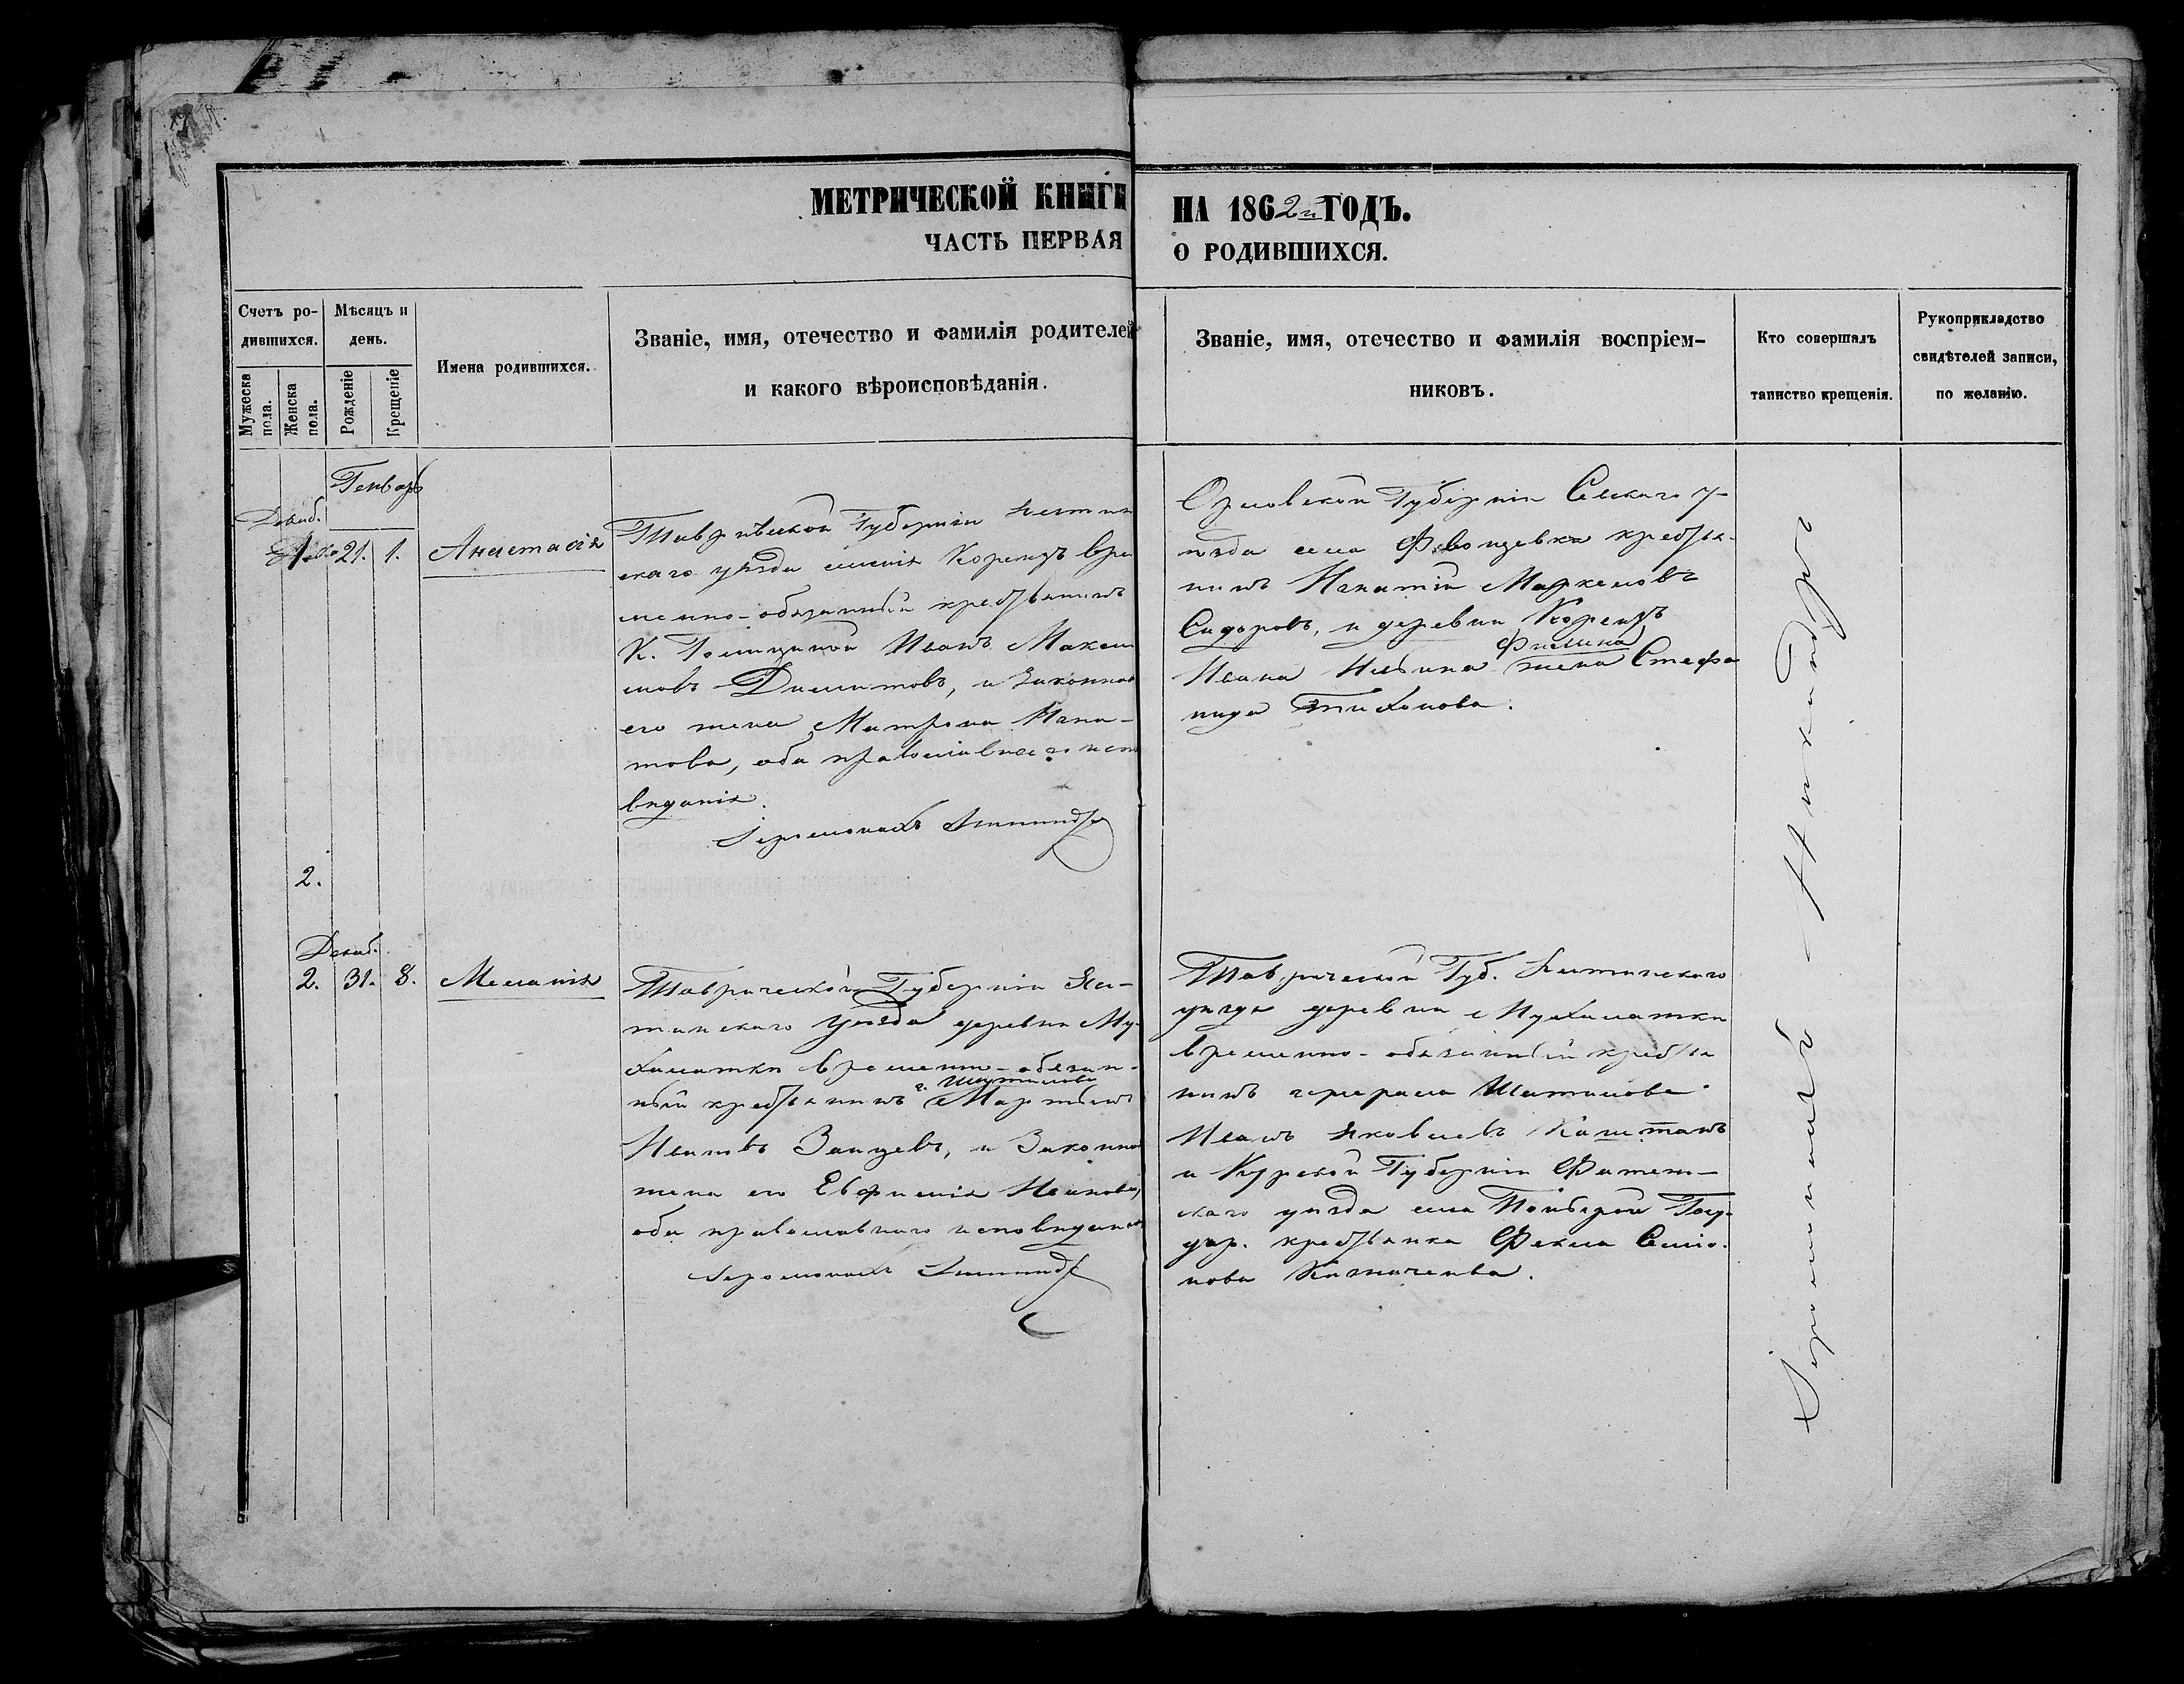 МЕТРИЧЕСКОЙ КНИГИ НА 1862й ГОДЪ.
ЧАСТЬ ПЕРВАЯ О РОДИВШИХСЯ.
Счетъ ро-
дившихся.
Мѣсяцъ и
день.
Мужеска
пола.
Женска
пола.
Рожденіе
Крещеніе
Имена родившихся.
Званіе, имя, отечество и фамилія родителей
и какого вѣроисповѣданія.
Званіе, имя, отечество и фамилія воспріем-
никовъ.
Кто совершалъ
таинство крещенія.
Рукоприкладство
свидѣтелей записи,
по желанію.
Генварь
Декаб.
1. 21. 1. Анастасія
Губерніи
скаго уѣзда имѣнія Кореизъ вре
менно-обязанный крестьянинъ
К. Голицыной Иванъ Макси
мовъ и законная
его жена Матрона Игна-
това, оба православнаго испо
вѣданія.
Іеромонахъ
Орловской Губерніи Севскаго у-
ѣзда села крестья-
нинъ Игнатій Маркеловъ
Сидоровъ, и деревни Кореизъ
Филина
Ивана Ильина жена Стефа
нида Тихонова.
2.
Декаб.
2. 31. 8. Меланія
Таврической Губерніи Ял-
тинскаго уѣзда деревни Му-
халатки временно-обязан-
г. Шатилова
ный крестьянинъ Мартынъ
Ивановъ Заицевъ, и Законная
жена его Евфимія Иванова,
оба православнаго исповѣданія
Іеромонахъ
Таврической Губ. Ялтинскаго
уѣзда деревни Мухалатки
временно-обязанный крестья
нинъ генерала Шатилова
Иванъ Яковлевъ
и Курской Губерніи Фатеж-
скаго уѣзда села Госу-
дар. крестьянка Фекла Семіо-
нова Казначеева.
Іеромонахъ Никандръ